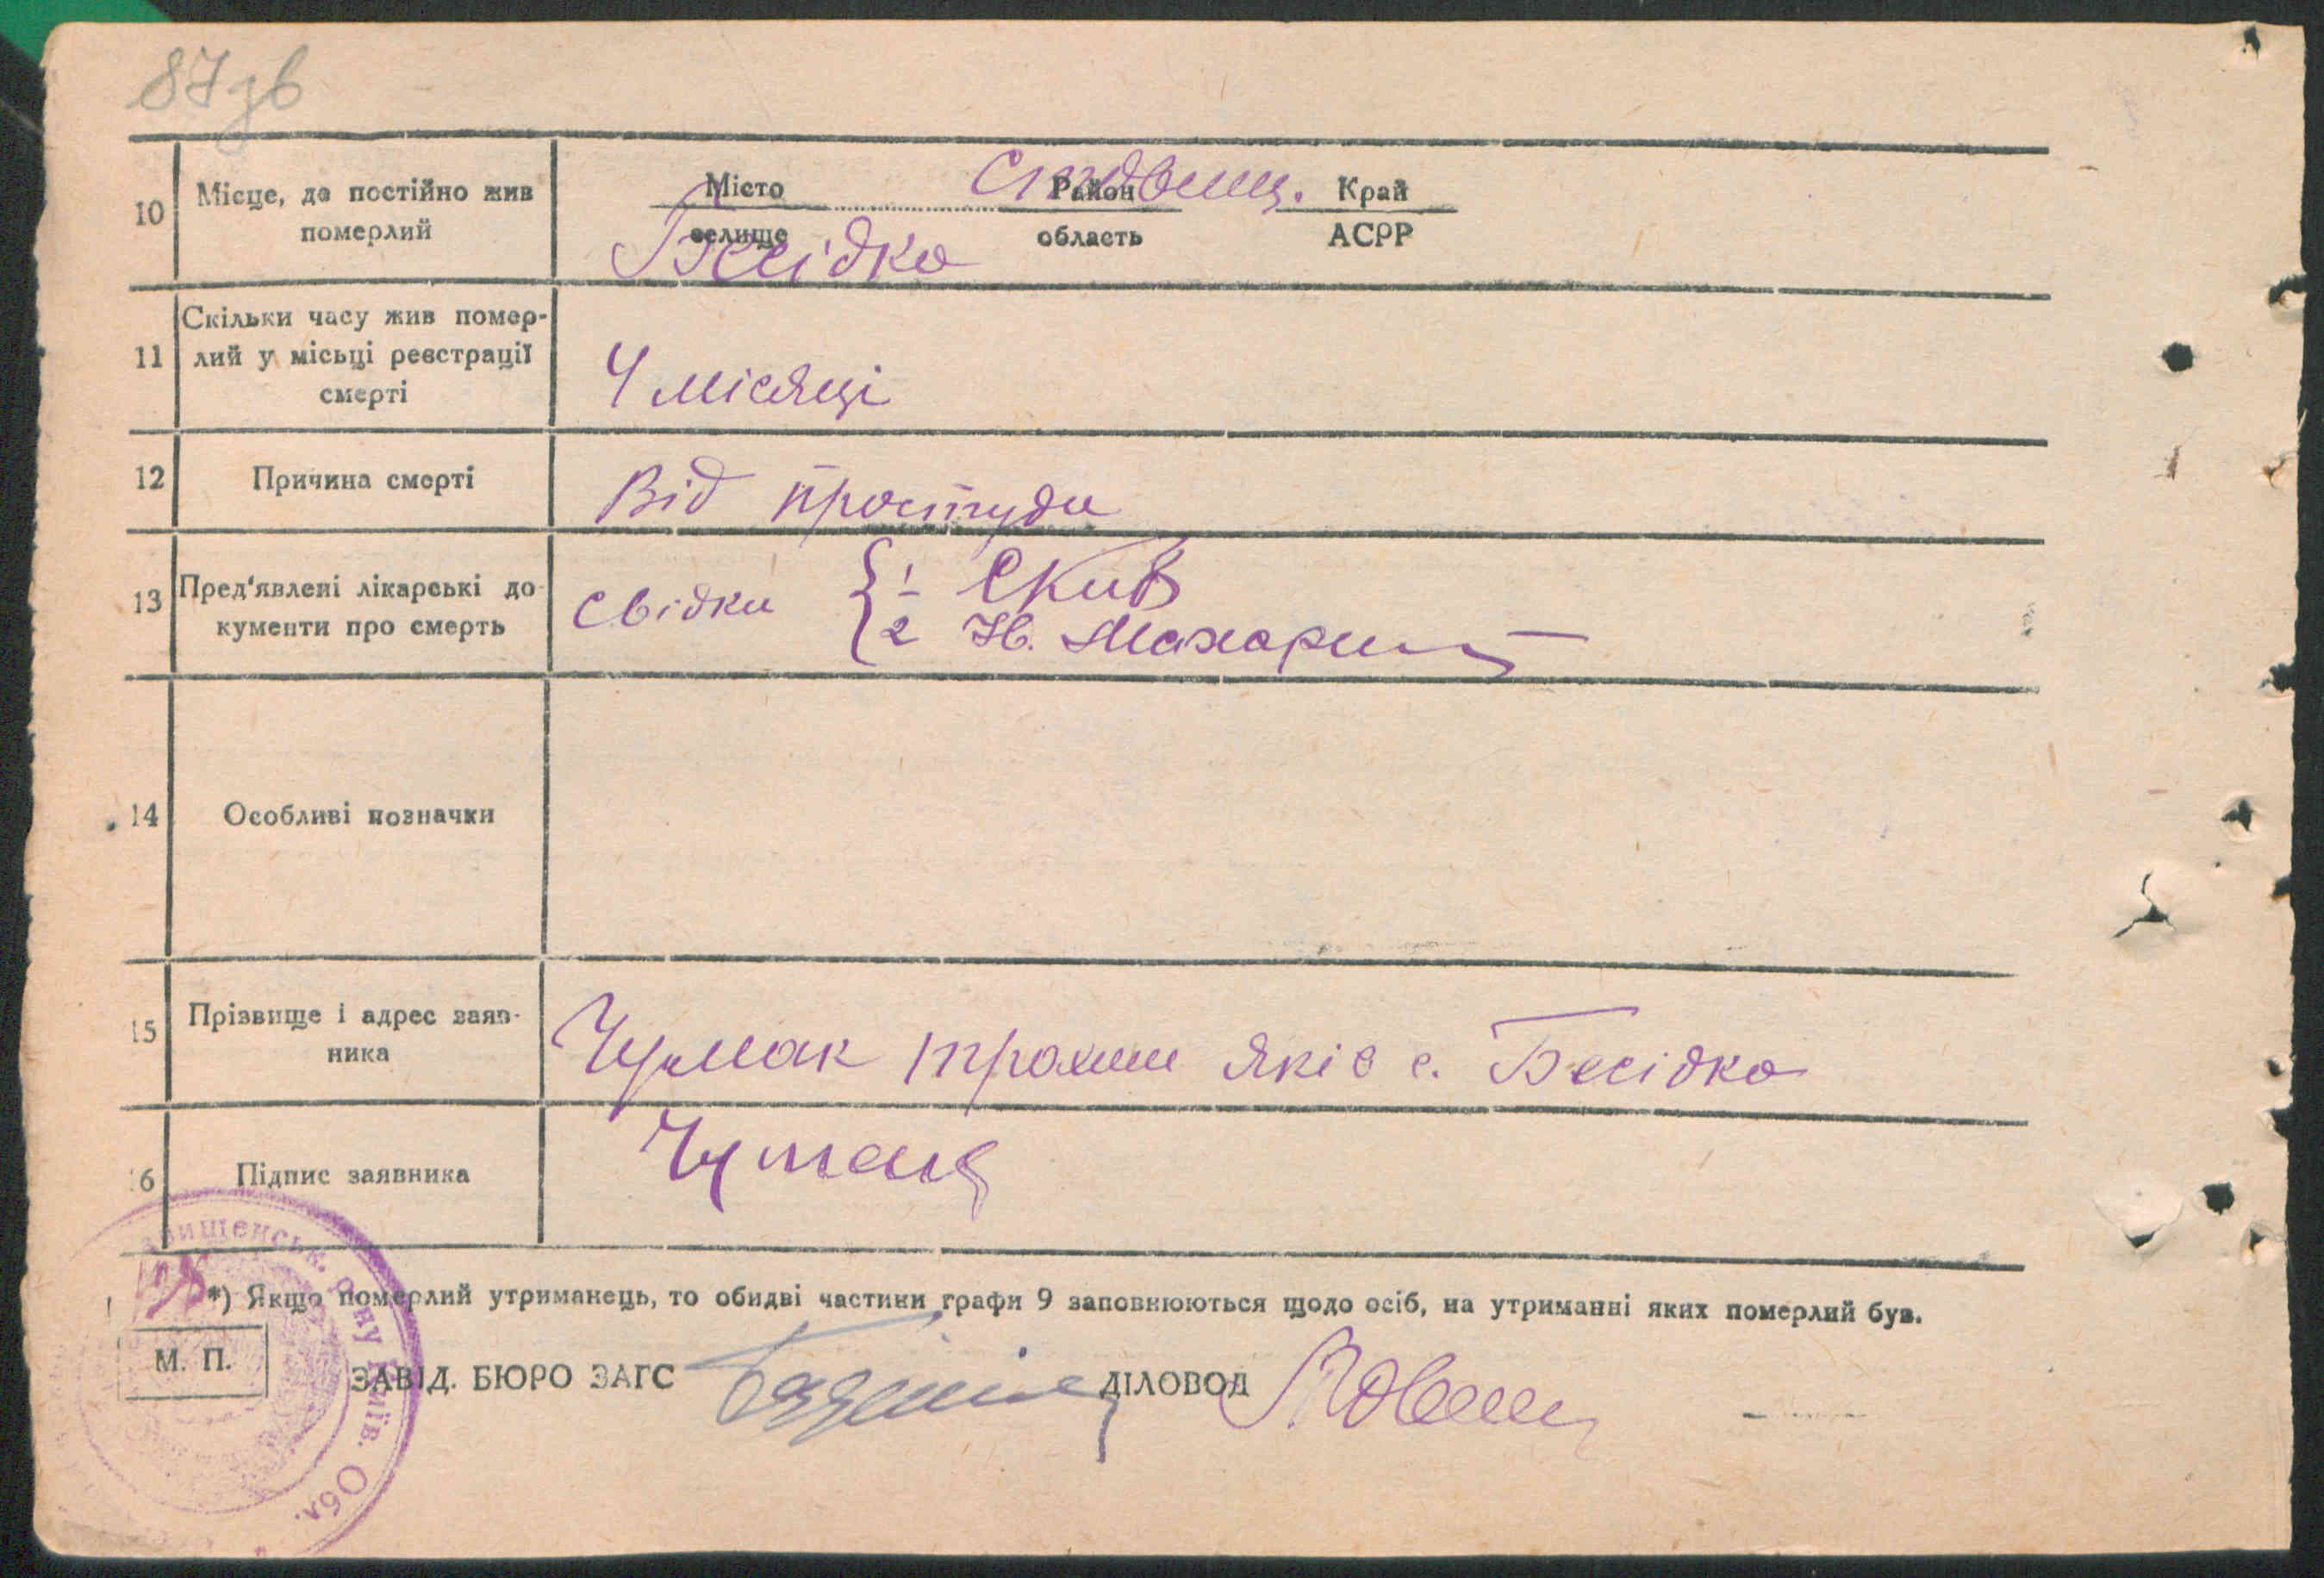 87зв
10
Місце, де постійно жив
померлий
Місто
селище
Бесідка
Район
область
Ставищ.
Край
АСРР
11
Скільки часу жив помер-
лий у місьці реєстрації
смерті
4 місяці
12
Причина смерті
Від простуди
13
Пред'явлені лікарські до
кументи про смерть
Свідки { 1 Скив
2 Н.
14
Особливі позначки
15
Прізвище і адрес заяв-
ника
Чумак Трохим Яків с. Бесідка
16
Підпис заявника
Чумак
*) Якщо померлий утриманець, то обидві частини графи 9 заповнюються щодо осіб, на утриманні яких померлий був.
М. П.
ЗАВІД. БЮРО ЗАГС
ДІЛОВОД
вищенськ. р-ну Київ. Обл.